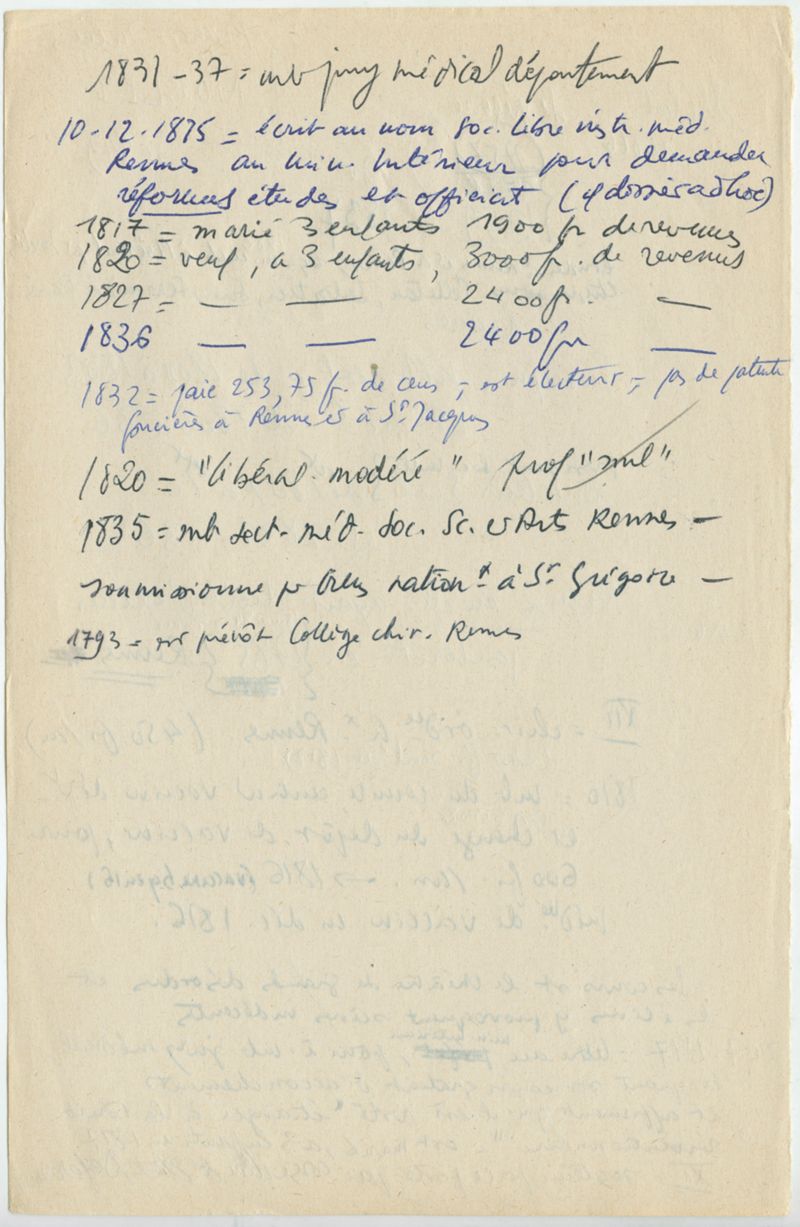 1831-37 = mb jury médical département
10-12-1815 = écrit au nom Soc. libre instr. méd.
Rennes au min. Intérieur pour demander
réformes études et officiat (cf dossier adhoc)
1817 = marié 3 enfants 1900 fr de revenus
1820 = veuf, a 3 enfants, 3000 fr. de revenus
1827 = — — 2400 fr. —
1836 — — 2400 fr —
1832 = paie 253,75 fr. de cens ; est électeur ; pas de patente
foncières à Rennes et à St Jacques
1820 = "libéral modéré" prof
1835 = mb sect. méd. Soc. Sc. et Arts Rennes —
soumissionne pr biens nationx à St Grégoire —
1793 = est prévôt Collège chir. Rennes